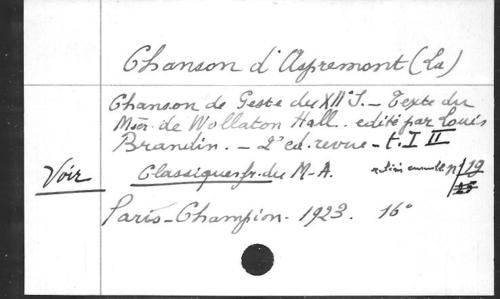 Chanson d'Aspremont (La)
Chanson de Geste du XIIe S. _ Texte du
Mscr. de Wollaton Hall. edité par Louis
Brandin. _ 2e ed. revue _ t. I II
Voir Classiques fr. du M-A. n° 19
25
Paris _ Champion. 1923. 16°